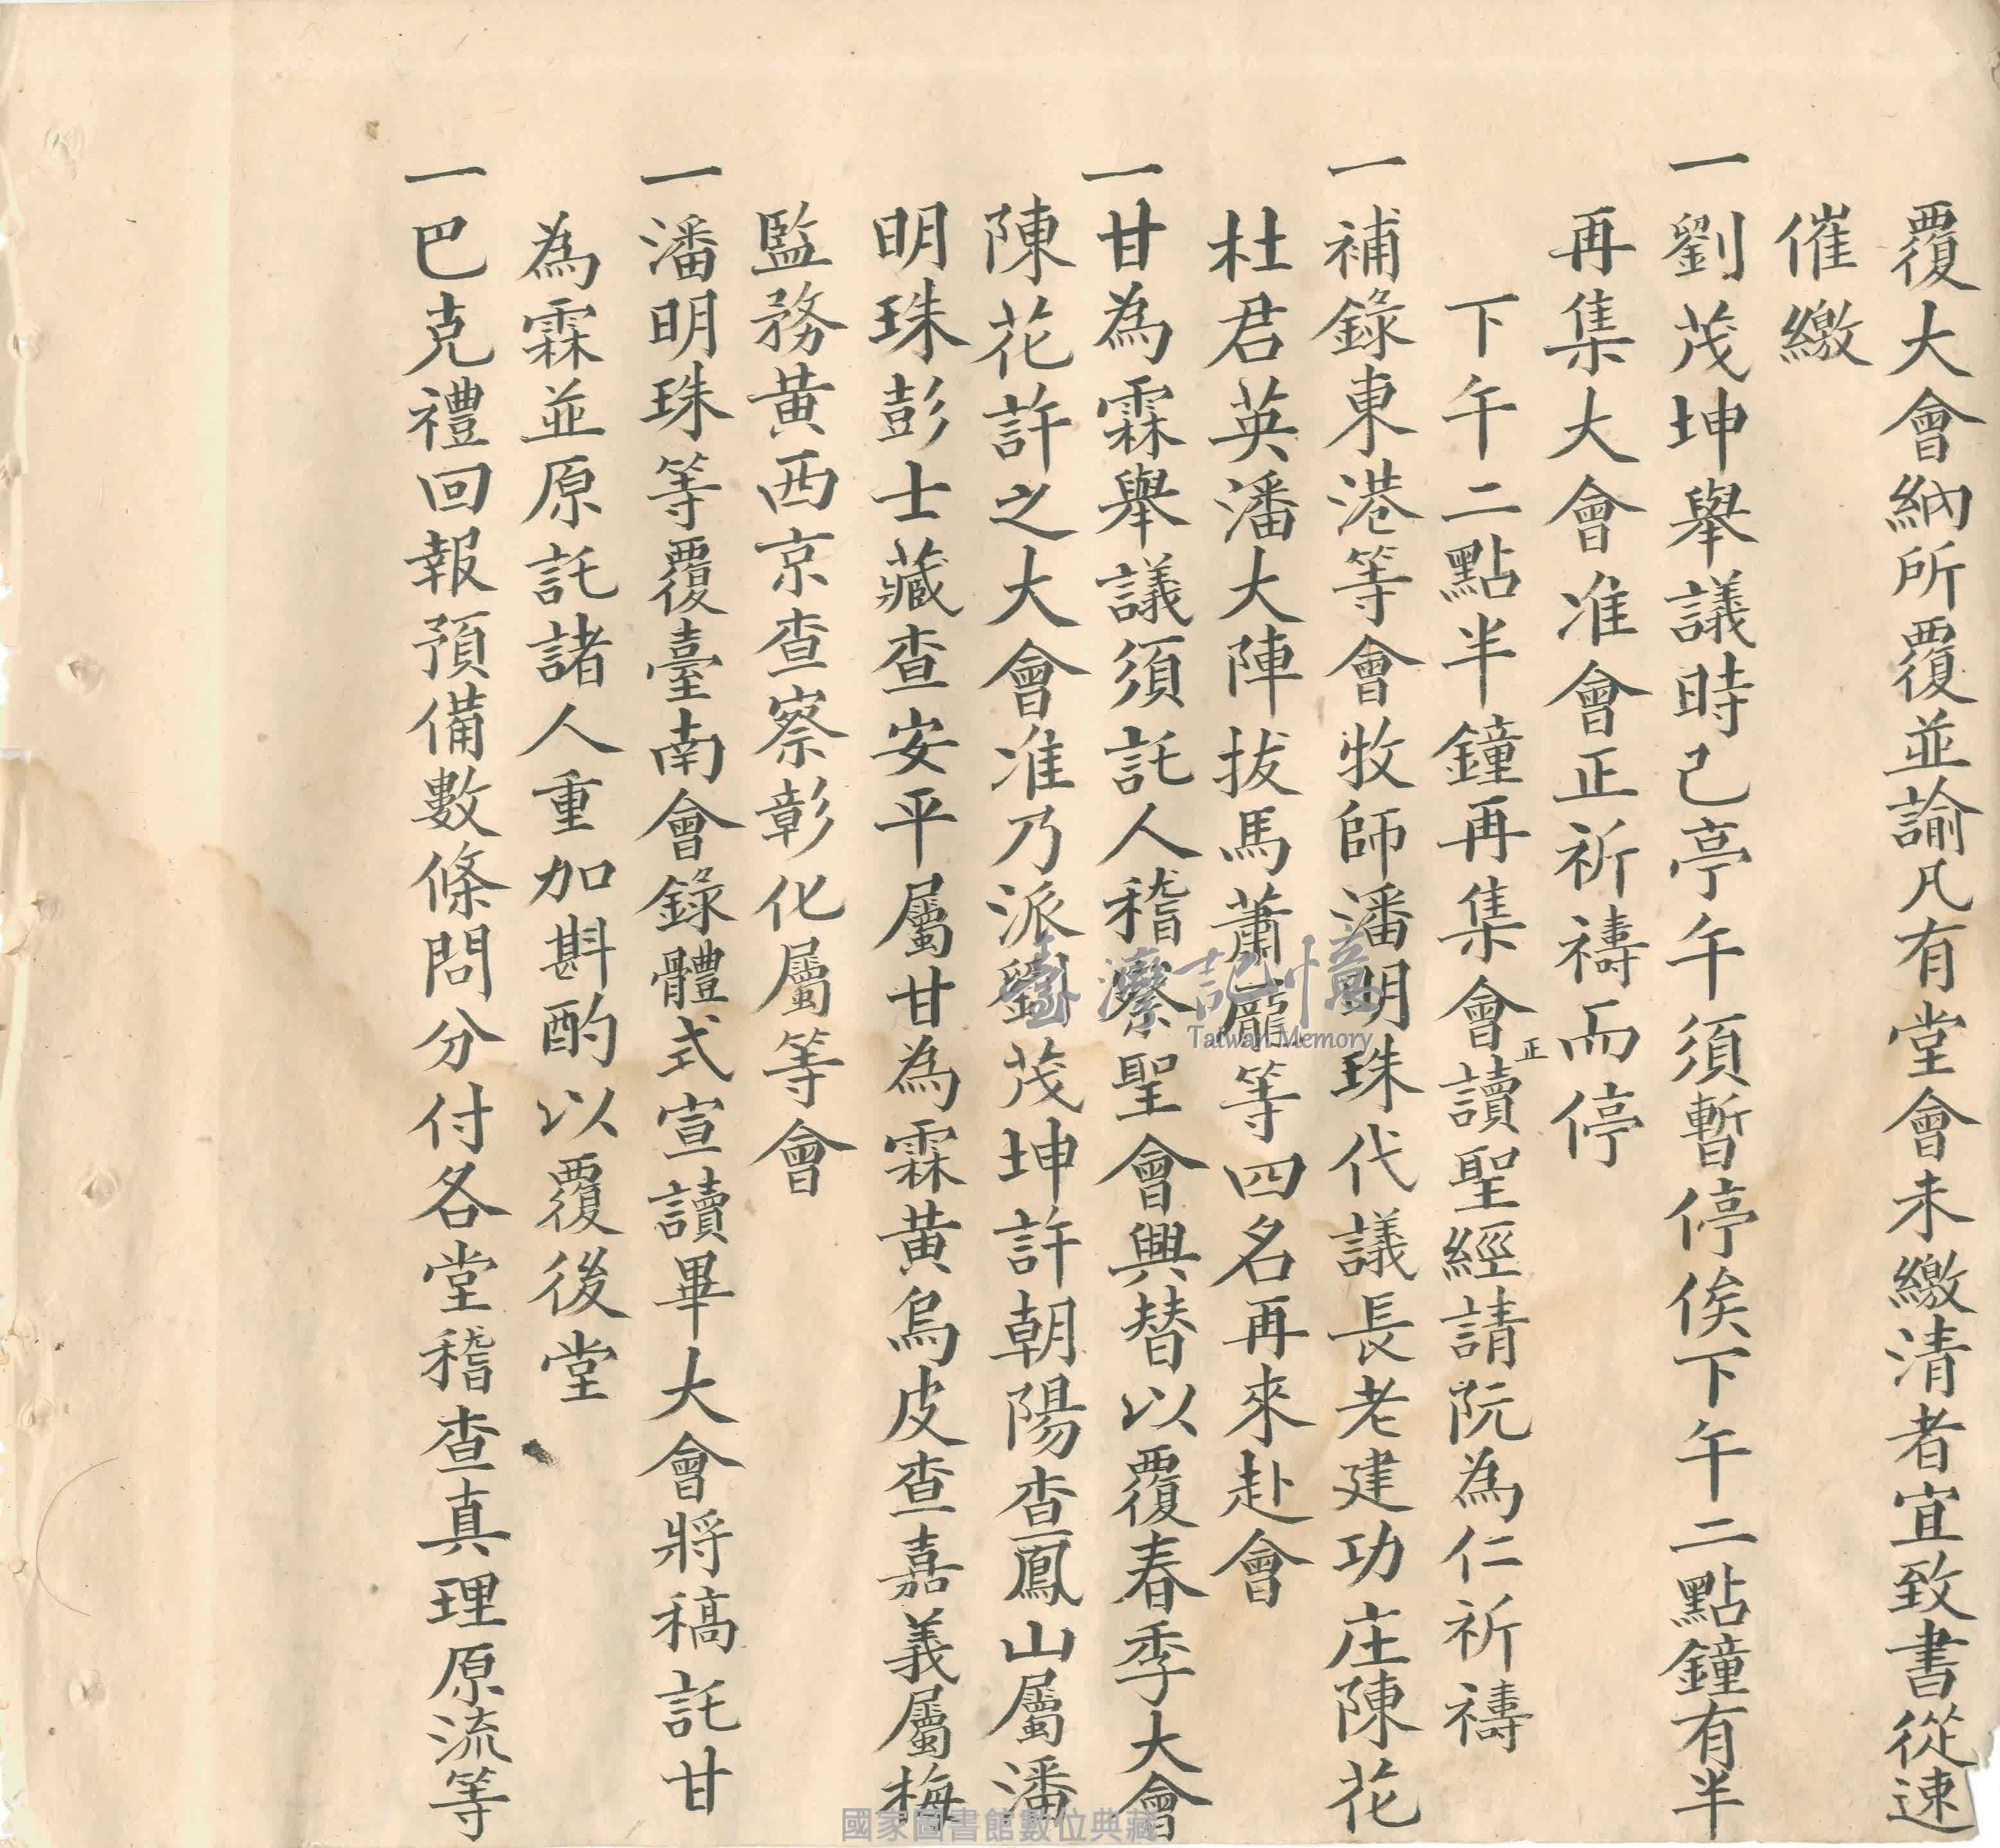 覆大會納所覆並諭凡有堂會未繳清者宜致書從速
催繳
一劉茂坤舉議時已亭午須暫停俟下午二點鐘有半
再集大會准會正祈禱而停
下午二點半鐘再集會正讀聖經請阮為仁祈禱
一補錄東港等會牧師潘明珠代議長老建功庄陳花
杜君英潘大陣拔馬蕭龐等四名再來赴會
一甘為霖舉議須託人稽察聖會興替以覆春季大會
陳花許之大會准乃派劉茂坤許朝陽查鳳山屬潘
明珠彭士藏查安平屬甘為霖黃烏皮查嘉義屬梅
監務黃西京查察彰化屬等會
一潘明珠等覆臺南會錄體式宣讀畢大會將稿託甘
為霖並原託諸人重加斟酌以覆後堂
一巴克禮回報預備數條問分付各堂稽查真理原流等
臺灣記憶
Taiwan Memory
國家圖書館數位典藏